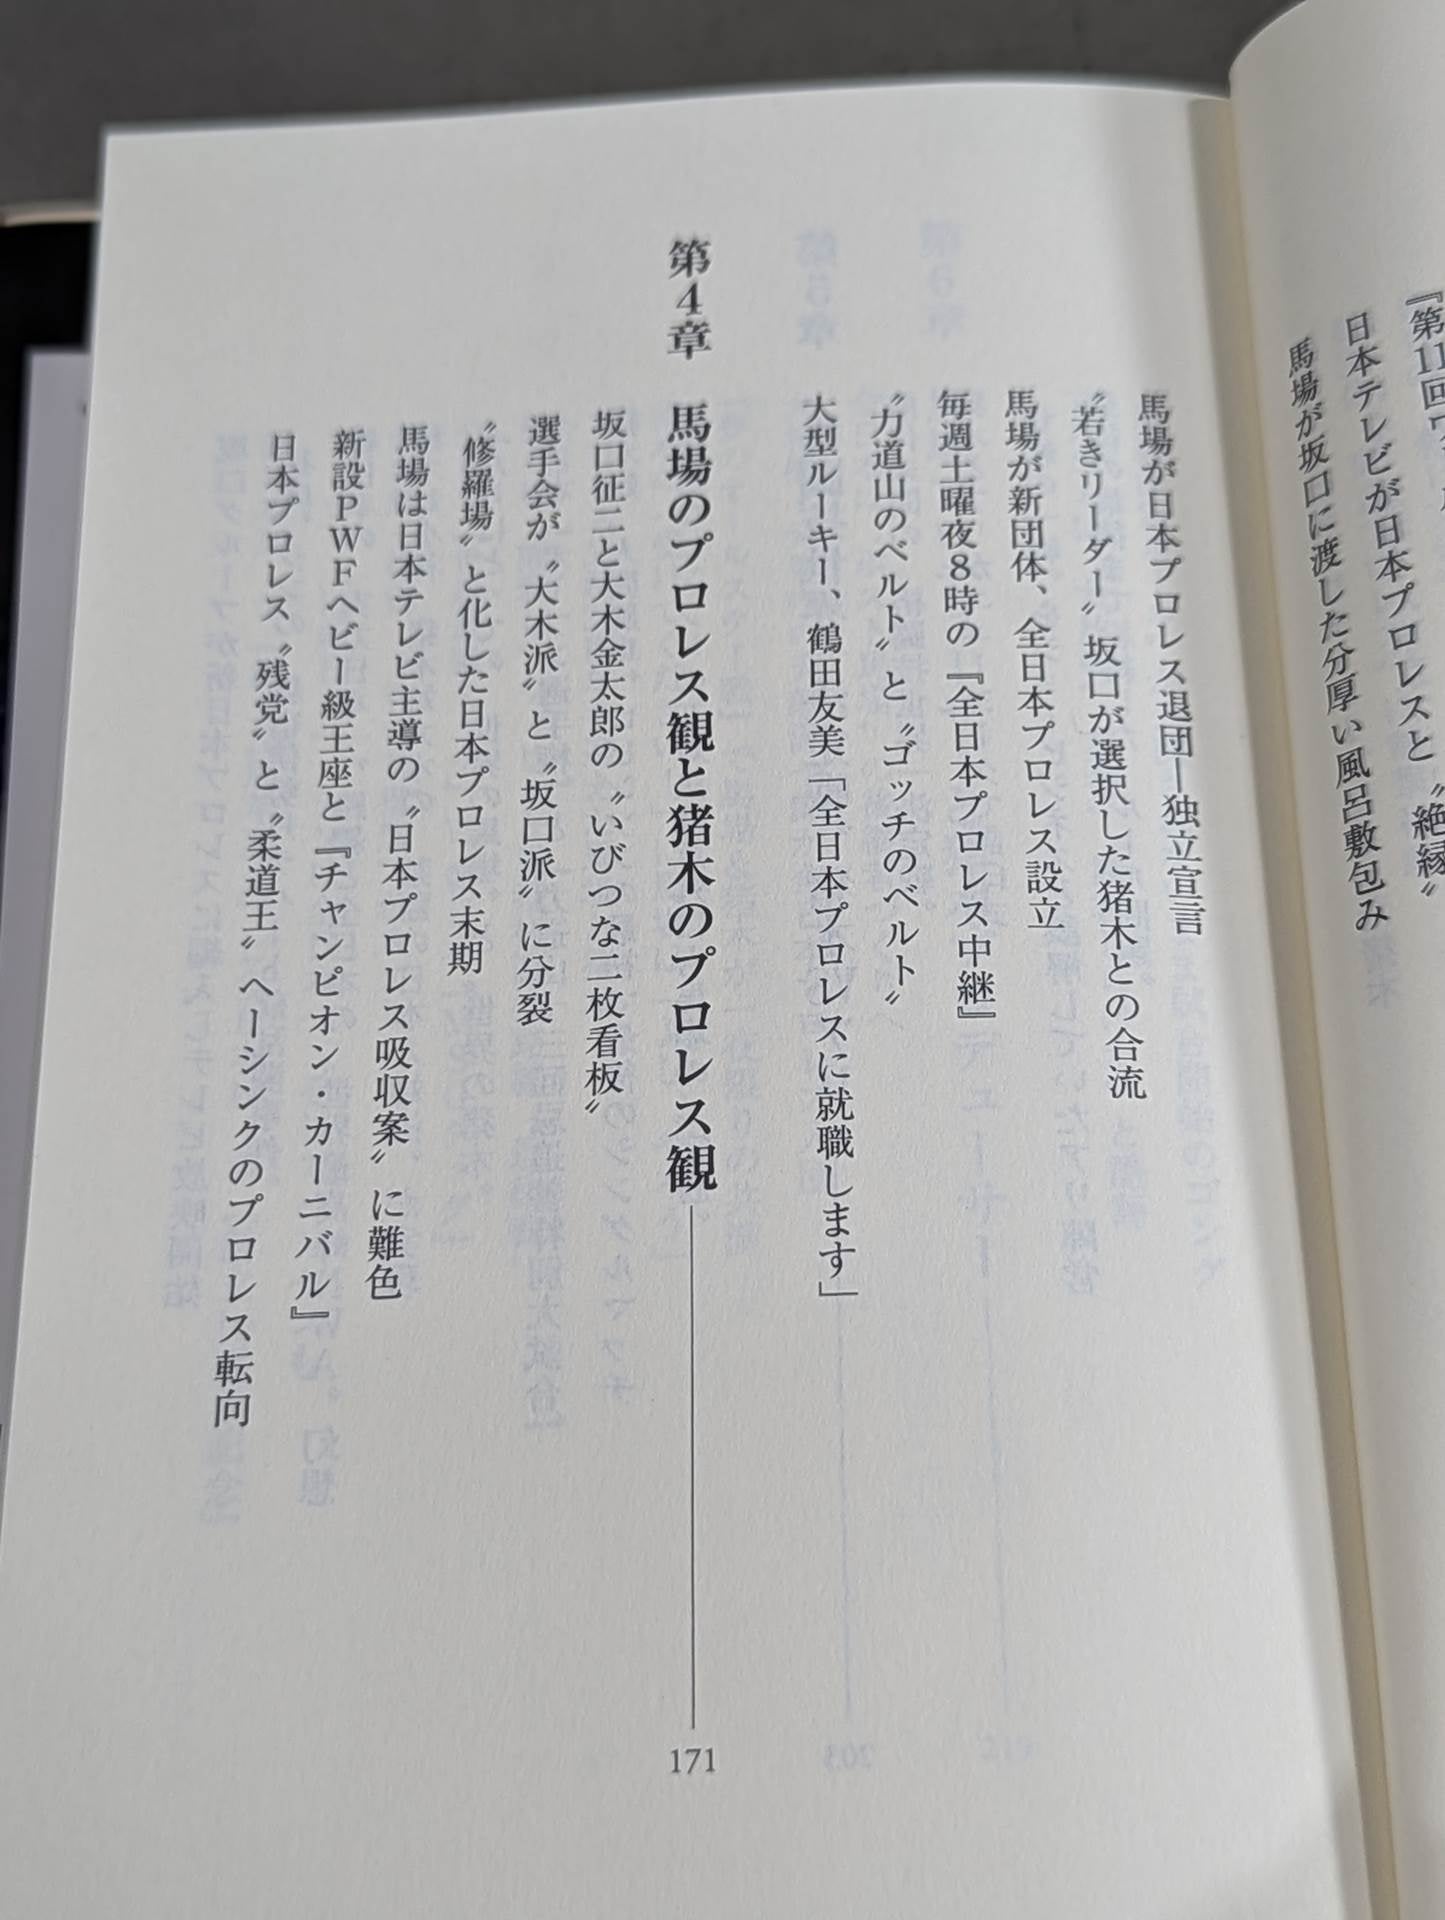 『第11回ワ
日本テレビが日本プロレスと〝絶縁〟
馬場が坂口に渡した分厚い風呂敷包み
馬場が日本プロレス退団―独立宣言
〝若きリーダー〟坂口が選択した猪木との合流
馬場が新団体、全日本プロレス設立
毎週土曜夜8時の『全日本プロレス中継』
〝力道山のベルト〟と〝ゴッチのベルト〟
大型ルーキー、鶴田友美「全日本プロレスに就職します」
第4章 馬場のプロレス観と猪木のプロレス観 171
坂口征二と大木金太郎の〝いびつな二枚看板〟
選手会が〝大木派〟と〝坂口派〟に分裂
〝修羅場〟と化した日本プロレス末期
馬場は日本テレビ主導の〝日本プロレス吸収案〟に難色
新設PWFヘビー級王座と『チャンピオン・カーニバル』
日本プロレス〝残党〟と〝柔道王〟ヘーシンクのプロレス転向